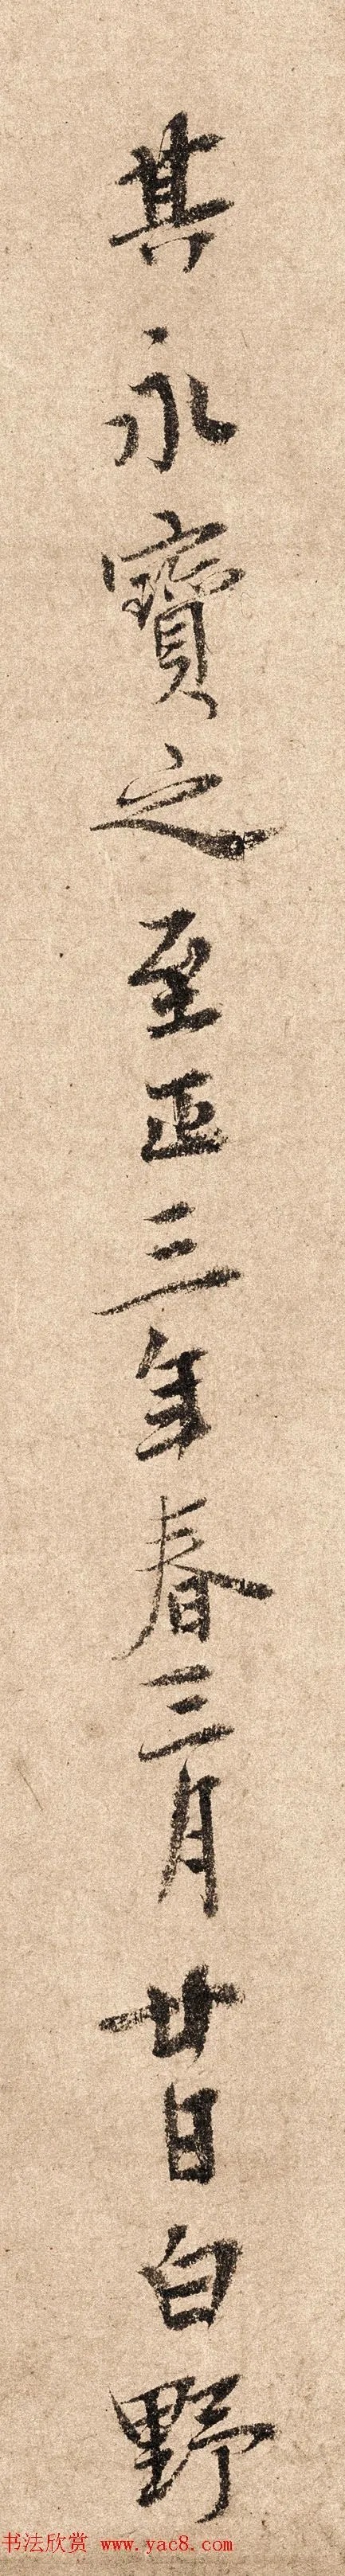 其永寶之至正三年春三月廿日白野
书法欣赏 www.yac8.com